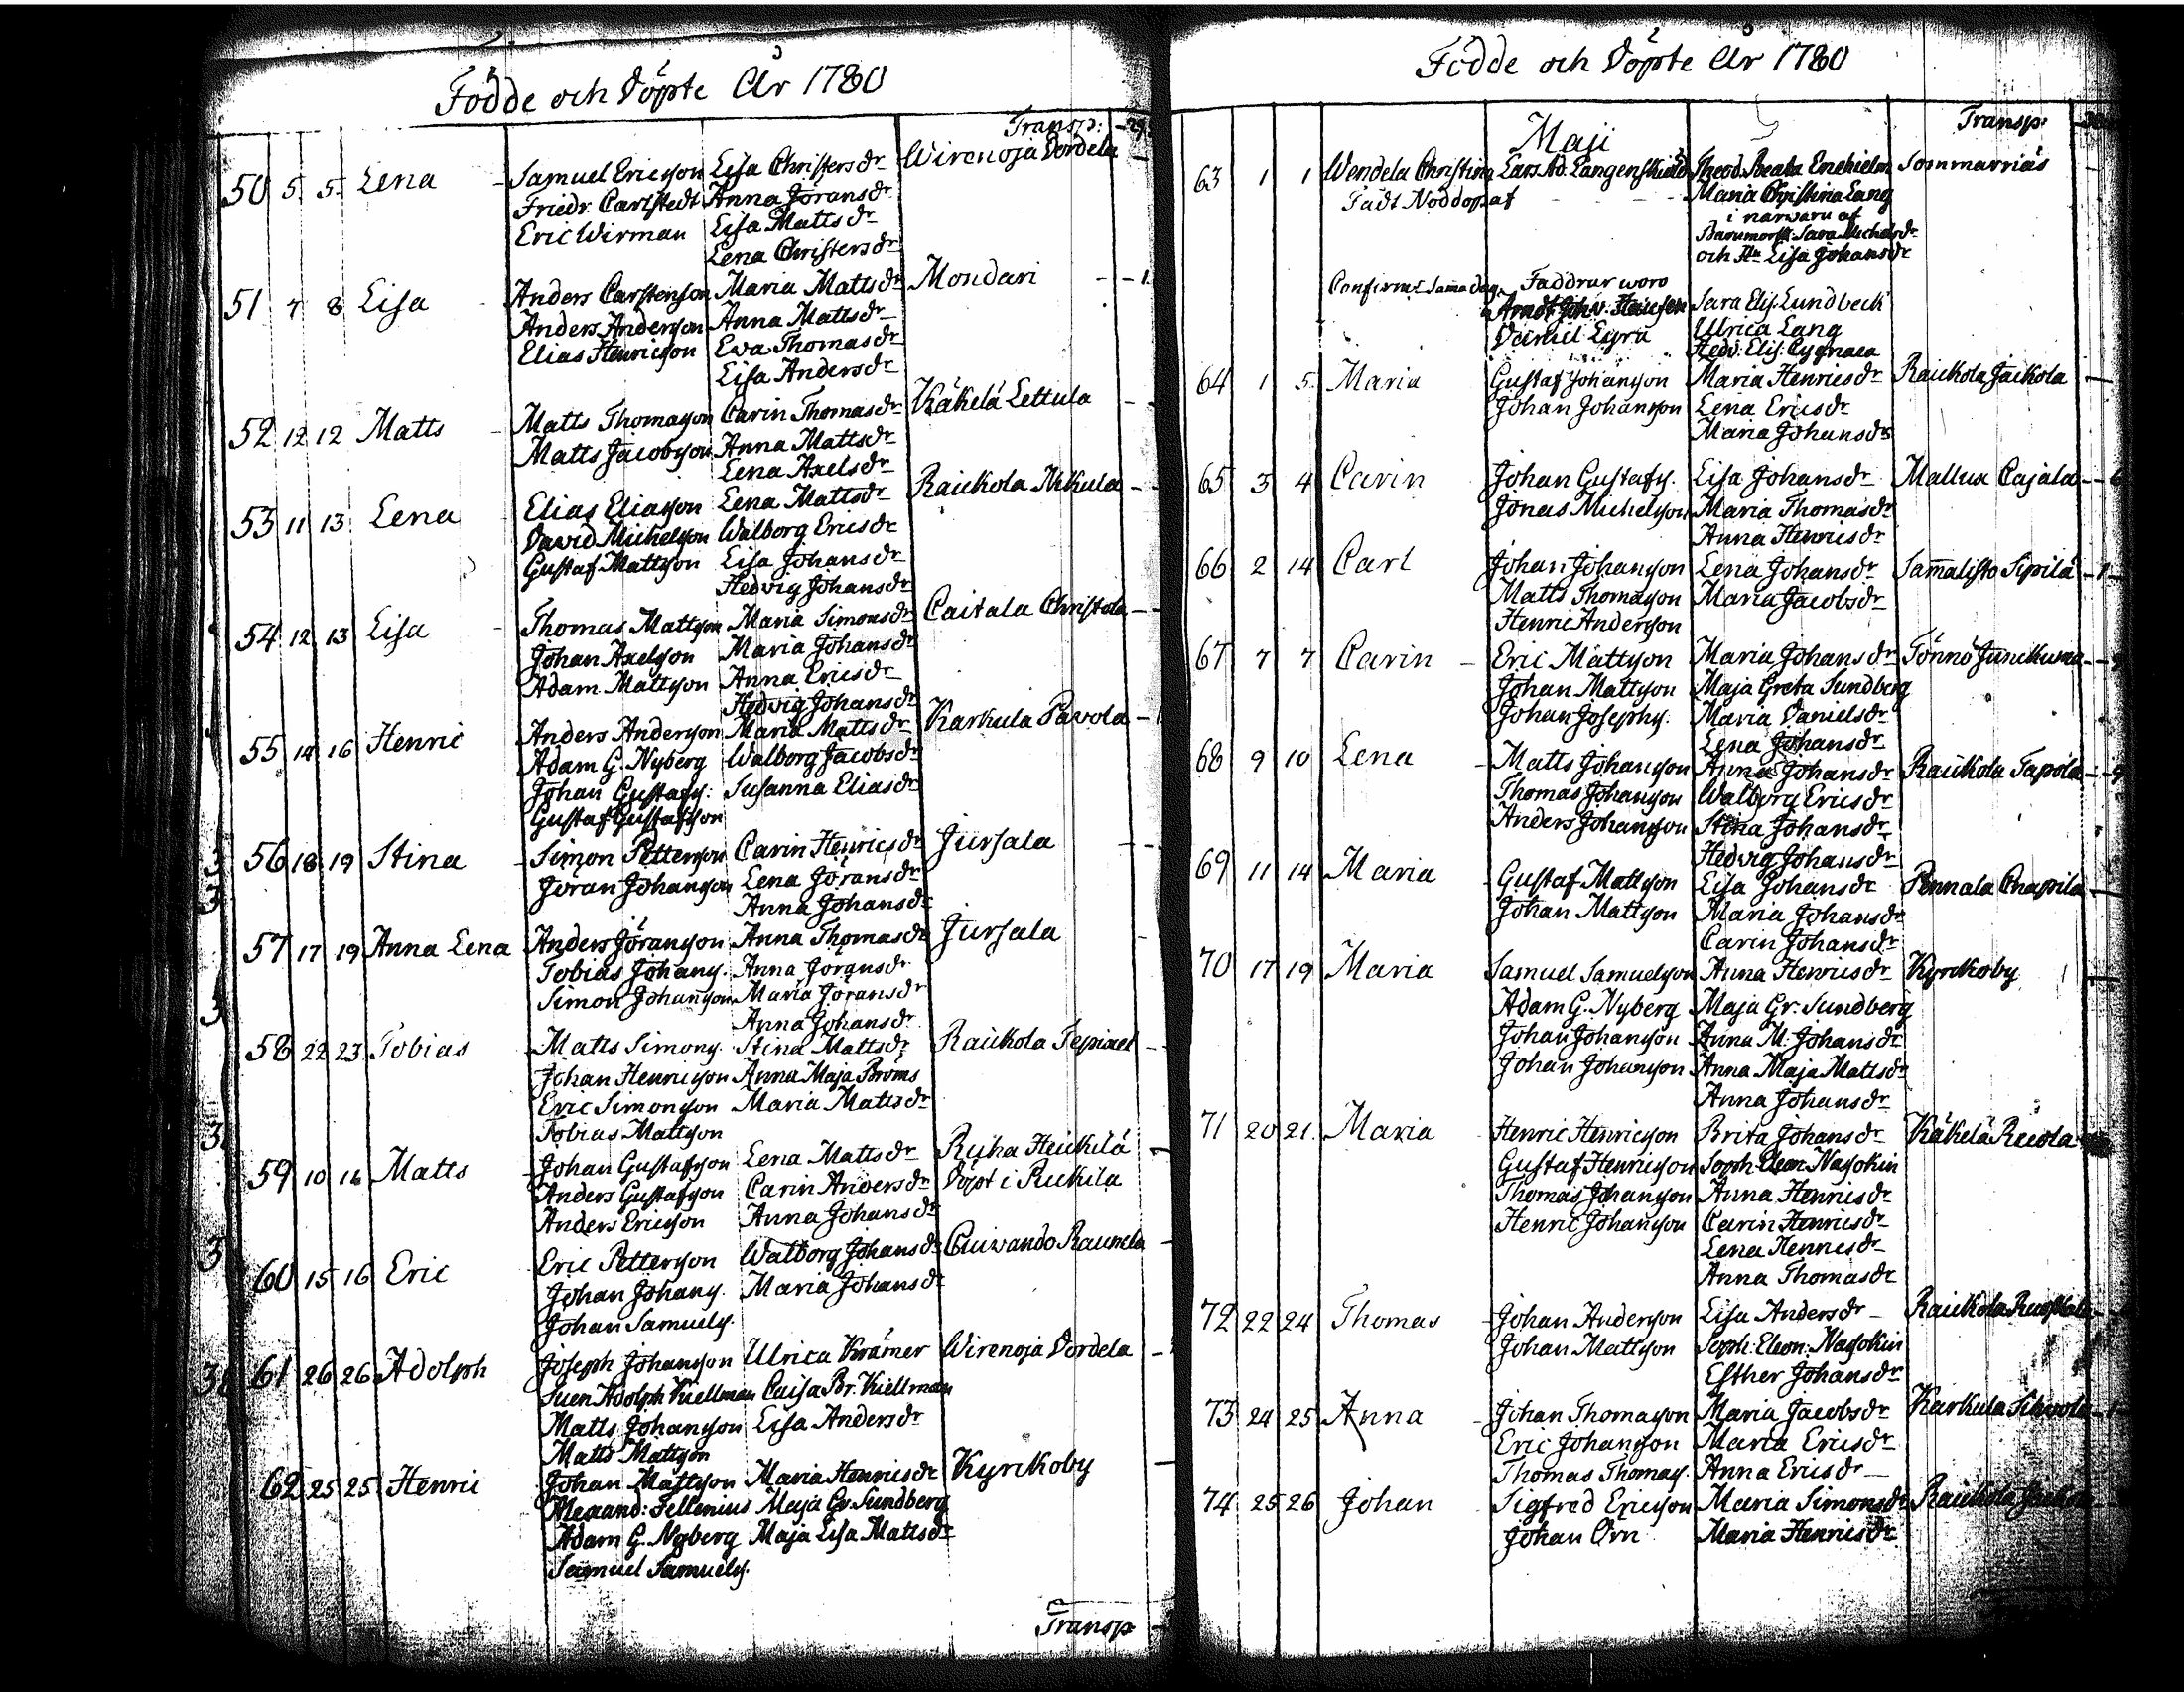 Födde och Döpte År 1780
Transp: 29
50 5 5 Lena Samuel Ericsson Lisa Christersdr Wirenoja Dordela
Friedr: Carlstedt Anna Jöransdr
Eric Wirman Lisa Mattsdr
Lena Christersdr
51 7 8 Lisa Anders Carstenson Maria Mattsdr Mondari 1
Anders Andersson Anna Mattsdr
Elias Henricsson Ewa Thomasdr
Lisa Andersdr
52 12 12 Matts Matts Thomasson Carin Thomasdr Käkelä Lettula
Matts Jacobsson Anna Mattsdr
Lena Axelsdr
53 11 13 Lena Elias Eliasson Lena Mattsdr Raickola Nikula
David Michelsson Walborg Ericsdr
Gustaf Mattsson Lisa Johansdr
Hedvig Johansdr
54 12 13 Lisa Thomas Mattsson Maria Simonsdr Caitala Christola
Johan Axelsson Maria Johansdr
Adam Mattsson Anna Ericsdr
Hedvig Johansdr
55 14 16 Henric Anders Andersson Maria Mattsdr Karkula Pavola
Adam G. Nyberg Walborg Jacobsdr
Johan Gustafs: Susanna Eliasdr
Gustaf Gustafsson
56 18 19 Stina Simon Pettersson Carin Henricsdr Jursala
Jöran Johansson Lena Jöransdr
Anna Johansdr
57 17 19 Anna Lena Anders Jöransson Anna Thomasdr Jursala
Tobias Johans. Anna Jöransdr
Simon Johansson Maria Jöransdr
Anna Johansdr
58 22 23 Tobias Matts Simons. Stina Mattsdr Raickola
Johan Henricsson Anna Maja Broms
Eric Simonsson Maria Mattsdr
Tobias Mattsson
59 10 16 Matts Johan Gustafsson Lena Mattsdr Ryha Heickilä
Anders Gustafsson Carin Andersdr Döpt i
Anders Ericsson Anna Johansdr
60 15 16 Eric Eric Pettersson Walborg Johansdr Cuivando Raumela
Johan Johans. Maria Johansdr
Johan Samuels.
61 26 26 Adolph Joseph Johansson Ulrica Krämer Wirenoja Dordela
Suen Adolph Kiellman Caisa Br. Kiellman
Matts Johansson Lisa Andersdr
Matts Mattsson
62 25 25 Henric Johan Mattsson Maria Henricsdr Kyrckoby
Alexand: Fellenius Maja Gr. Sundberg
Adam G. Nyberg Maja Lisa Mattsdr
Samuel Samuels.
Transp
Födde och Döpte År 1780
Maji Transp:
63 1 1 Wendela Christina Lars Ad. Langenskiöld Theod. Beata Sommarnäs
Fådt Nöddop af Maria Christina Lang
i närvaru af
Sara Michelsdr
och Lisa Johansdr
Confirm. Samma dag. Faddrar woro
Sara Elis. Lundbeck
Daniel Lyra Ulrica Lang
Hedv: Elis: Cygnaea
64 1 5 Maria Gustaf Johansson Maria Henricsdr Raickola Jaickola
Johan Johansson Lena Ericsdr
Maria Johansdr
65 3 4 Carin Johan Gustafs. Lisa Johansdr Mallux Cajala
Jonas Michelsson Maria Thomasdr
Anna Henricsdr
66 2 14 Carl Johan Johansson Lena Johansdr Sam̄alisto Sipilä 1
Matts Thomasson Maria Jacobsdr
Henric Andersson
67 7 7 Carin Eric Mattsson Maria Johansdr Tönnö Junickuna
Johan Mattsson Maja Greta Sundberg
Johan Josephs. Maria Danielsdr
Lena Johansdr
68 9 10 Lena Matts Johansson Anna Johansdr Raickola Tapola
Thomas Johansson Walborg Ericsdr
Anders Johansson Stina Johansdr
Hedvig Johansdr
69 11 14 Maria Gustaf Mattsson Lisa Johansdr Pennala Cnapila
Johan Mattsson Maria Johansdr
Carin Johansdr
70 17 19 Maria Samuel Samuelsson Anna Henricsdr Kyrckoby
Adam G. Nyberg Maja Gr. Sundberg
Johan Johansson Anna M. Johansdr
Johan Johansson Anna Maja Mattsdr
Anna Johansdr
71 20 21 Maria Henric Henricsson Brita Johansdr Käkelä Recola
Gustaf Henricsson Soph. Eleon. Nasokin
Thomas Johansson Anna Henricsdr
Henric Johansson Carin Henricsdr
Lena Henricsdr
Anna Thomasdr
72 22 24 Thomas Johan Andersson Lisa Andersdr Raickola
Johan Mattsson Soph: Eleon: Nasokin
Esther Johansdr
73 24 25 Anna Johan Thomasson Maria Jacobsdr Karkula
Eric Johansson Maria Ericsdr
Thomas Thomas. Anna Ericsdr
74 25 26 Johan Sigfred Ericsson Maria Simonsdr Raickola
Johan Örn Maria Henricsdr